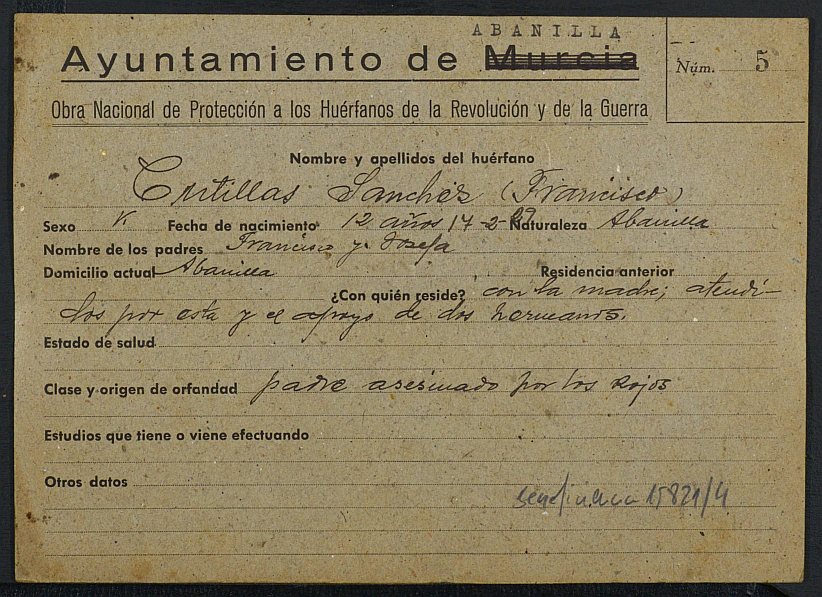 ABANILLA
Ayuntamiento de Murcia
Núm. 5
Obra Nacional de Protección a los Huérfanos de la Revolución y de la Guerra
Nombre y apellidos del huérfano
Cutillas Sanchez (Francisco)
Sexo V Fecha de nacimiento 12 años 17-2-29 Naturaleza Abanilla
Nombre de los padres Francisco y Josefa
Domicilio actual Abanilla Residencia anterior
¿Con quién reside? con la madre; atendi-
dos por esta y el apoyo de dos hermanos.
Estado de salud
Clase y origen de orfandad padre asesinado por los rojos
Estudios que tiene o viene efectuando
Otros datos
15821/4